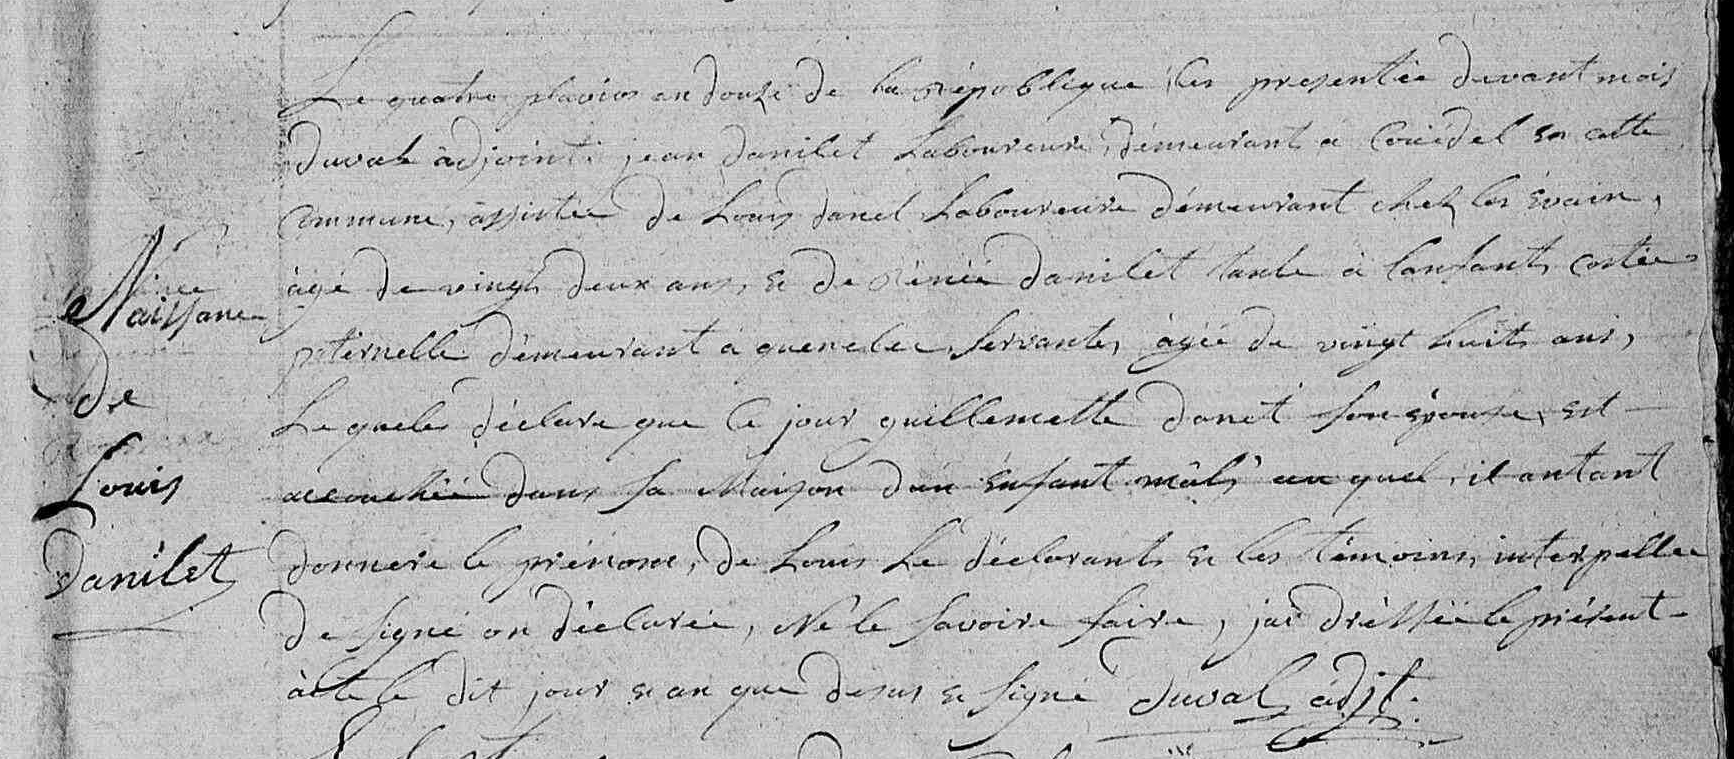 Le quatre pluvios an douze de la république ses presentée devant mois
duval adjoint jean danilet Laboureure, démeurant a Couëdel en cette
commune, assistée de Louis danel Laboureure démeurant chez les Evain,
àgé de vingt deux ans, et de rénée danilet tante a lanfant, costée
paternelle démeurant a quenelec, servante, àgéé de vingt huit ans,
Le quele déclare que Ce jour guillemette danet son épouse, est
accouchéé dans sa Maison dun enfant mâle au quel, il antant
donnere le prénom, de Louis Le déclarant et les témoins, interpellee
De signé on déclarée, Ne le savoire faire, jai dréssée le présent
àcte le dit jour et an que desus et signé Duval adjt.
Naissance
De
Louis
Danilet